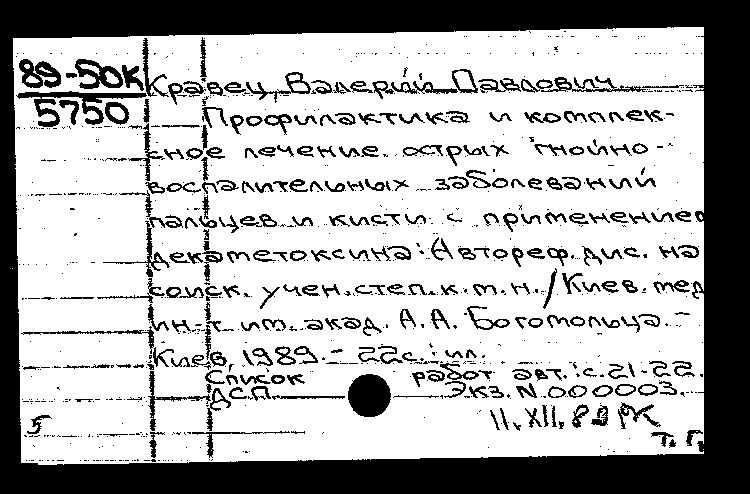 89-50К
5750
Кравец, Валерий Павлович
Профилактика и комплек-
сное лечение острых гнойно-
воспалительных заболеваний
пальцев и кисти с применением
декаметоксина: Автореф. дис. на
соиск. учен. степ. к.м.н. / Киев. мед.
ин-т им. акад. А.А. Богомольца. -
Киев, 1989. - 22с.: ил.
Список работ авт.: с. 21-22.
ДСП Экз. N 000003.
5 11.XII.89
Т. Г.